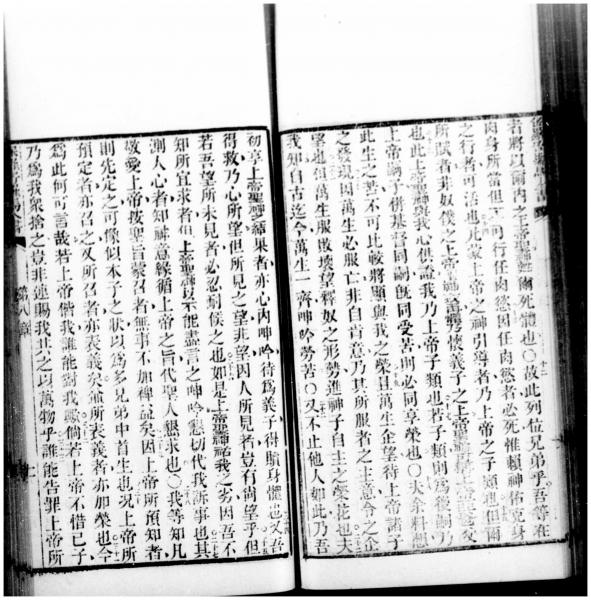 者將以爾內之上帝聖神甦爾死體也〇故此列位兄弟乎吾等在
肉身所當但非可行任肉慾因任肉慾者必死惟賴神佑克身
之行者可活也此蒙上帝之神引導者乃上帝之子類也但爾
所賦者非奴僕之上帝
也此上帝聖神與我心俱證我乃上帝子類也若子類則為後嗣乃
上帝嗣子併基督同嗣旣同受苦則必同享榮也〇夫余料想
此生之苦不可比較將顯與我之榮且萬生企望待上帝諸子
之發現因萬生必服亡非自肯意乃其所服者之主意今之企
望也但萬生服敗壞望釋奴之形勢進神子自主之榮花也夫
我知自古迄今萬生一齊呻吟勞苦〇又不止他人如此乃吾
初享上帝聖神結果者亦心內呻吟待為義子得贖身體也又吾
得救乃心所望但所見之望非望因人所見者豈有尚望乎但
若吾望所未見者必忍耐俟之也如是上帝聖神祐我之劣因吾不
知所宜求者但上帝聖神以不能盡言之呻吟懇切代我訴事也其
測人心者知神意緣循上帝之旨代聖人懇求也〇我等知凡
敬愛上帝按聖旨蒙召者無事不加裨益矣因上帝所預知者
則先定之可像似本子之狀以為多兄弟中首生也况上帝所
預定者亦召之又所召者亦表義矣㒰所表義者亦加榮也今
為此何可言哉若上帝偕我誰能對我歟倘若上帝不惜己子
乃為我衆捨之豈非連賜我共之以萬物乎誰能告罪上帝所
第八章